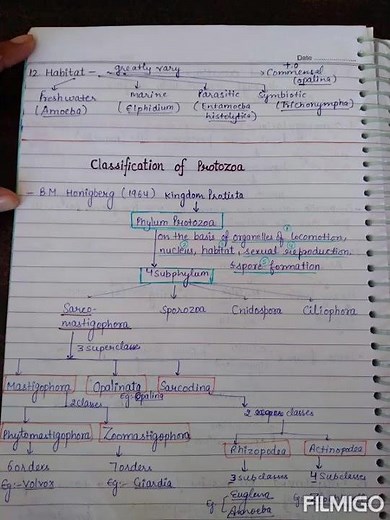 Date
12. Habitat - greatly vary → Commensal
(opalina)
Freshwater marine Parasitic Symbiotic
(Amoeba) (Elphidium) (Entamoeba histolytica) (Trichonympha)
Classification of Protozoa
- B.M. Honigberg (1964) Kingdom Protista
Phylum Protozoa
on the basis of organelles of ① locomotion,
nucleus, habitat, sexual reproduction
& spore formation
4 Subphylum
Sarco-mastigophora Sporozoa Cnidospora Ciliophora
3 superclass
Mastigophora Opalinata Sarcodina
2 classes Eg:- Opalina 2 classes
Phytomastigophora Zoomastigophora Rhizopodea Actinopodea
6 orders 7 orders 3 subclasses 4 Subclasses
Eg:- Volvox Eg:- Giardia Eg Euglena
Amoeba
FILMIGO